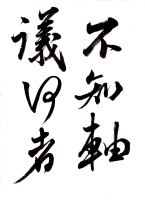 不知軸
議何者